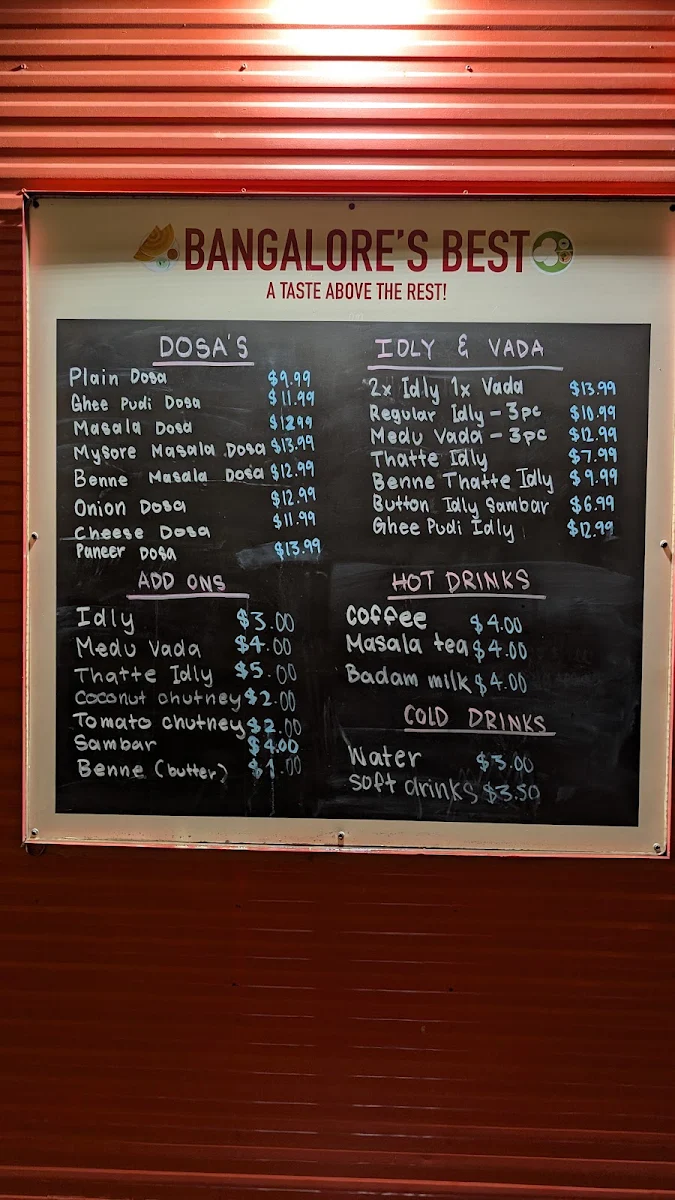 BANGALORE'S BEST
A TASTE ABOVE THE REST!
DOSA'S
Plain Dosa $9.99
Ghee Pudi Dosa $11.99
Masala Dosa $1299
Mysore Masala Dosa $13.99
Benne Masala Dosa $12.99
Onion Dosa $12.99
Cheese Dosa $11.99
Paneer Dosa $13.99
ADD ONS
Idly $3.00
Medu Vada $4.00
Thatte Idly $5.00
Coconut chutney $2.00
Tomato chutney $2.00
Sambar $4.00
Benne (butter) $1.00
IDLY & VADA
2x Idly 1x Vada $13.99
Regular Idly - 3pc $10.99
Medu Vada - 3pc $12.99
Thatte Idly $7.99
Benne Thatte Idly $9.99
Button Idly Sambar $6.99
Ghee Pudi Idly $12.99
HOT DRINKS
Coffee $4.00
Masala tea $4.00
Badam milk $4.00
COLD DRINKS
Water $3.00
soft drinks $3.50